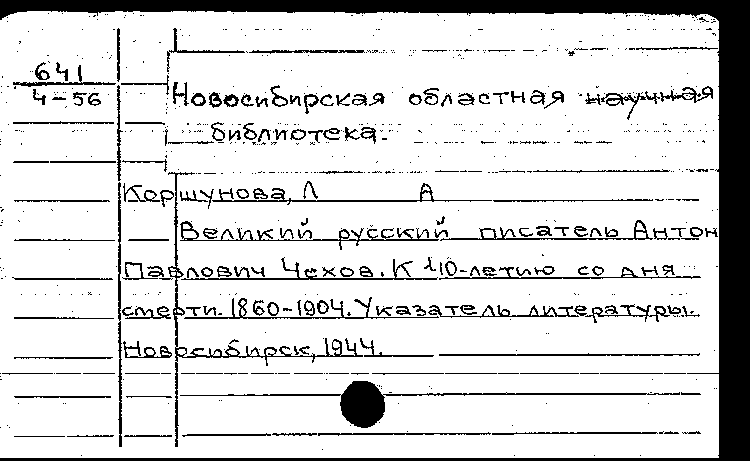 641
4-56
Новосибирская областная научная
библиотека.
Коршунова, Л А
Великий русский писатель Антон
Павлович Чехов. К 40-летию со дня
смерти. 1860-1904. Указатель литературы.
Новосибирск, 1944.